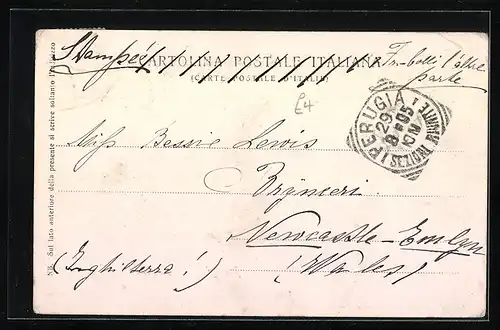 CARTOLINA POSTALE ITALIANA
(CARTE POSTALE D'ITALIE)
l'altra
parte
£4
PERUGIA
29
8-05
Miss Bessie Lewis
Newcastle-Emlyn
(Inghilterra!) (Wales)
NB. Sul lato anteriore della presente si scrive soltanto l'indirizzo